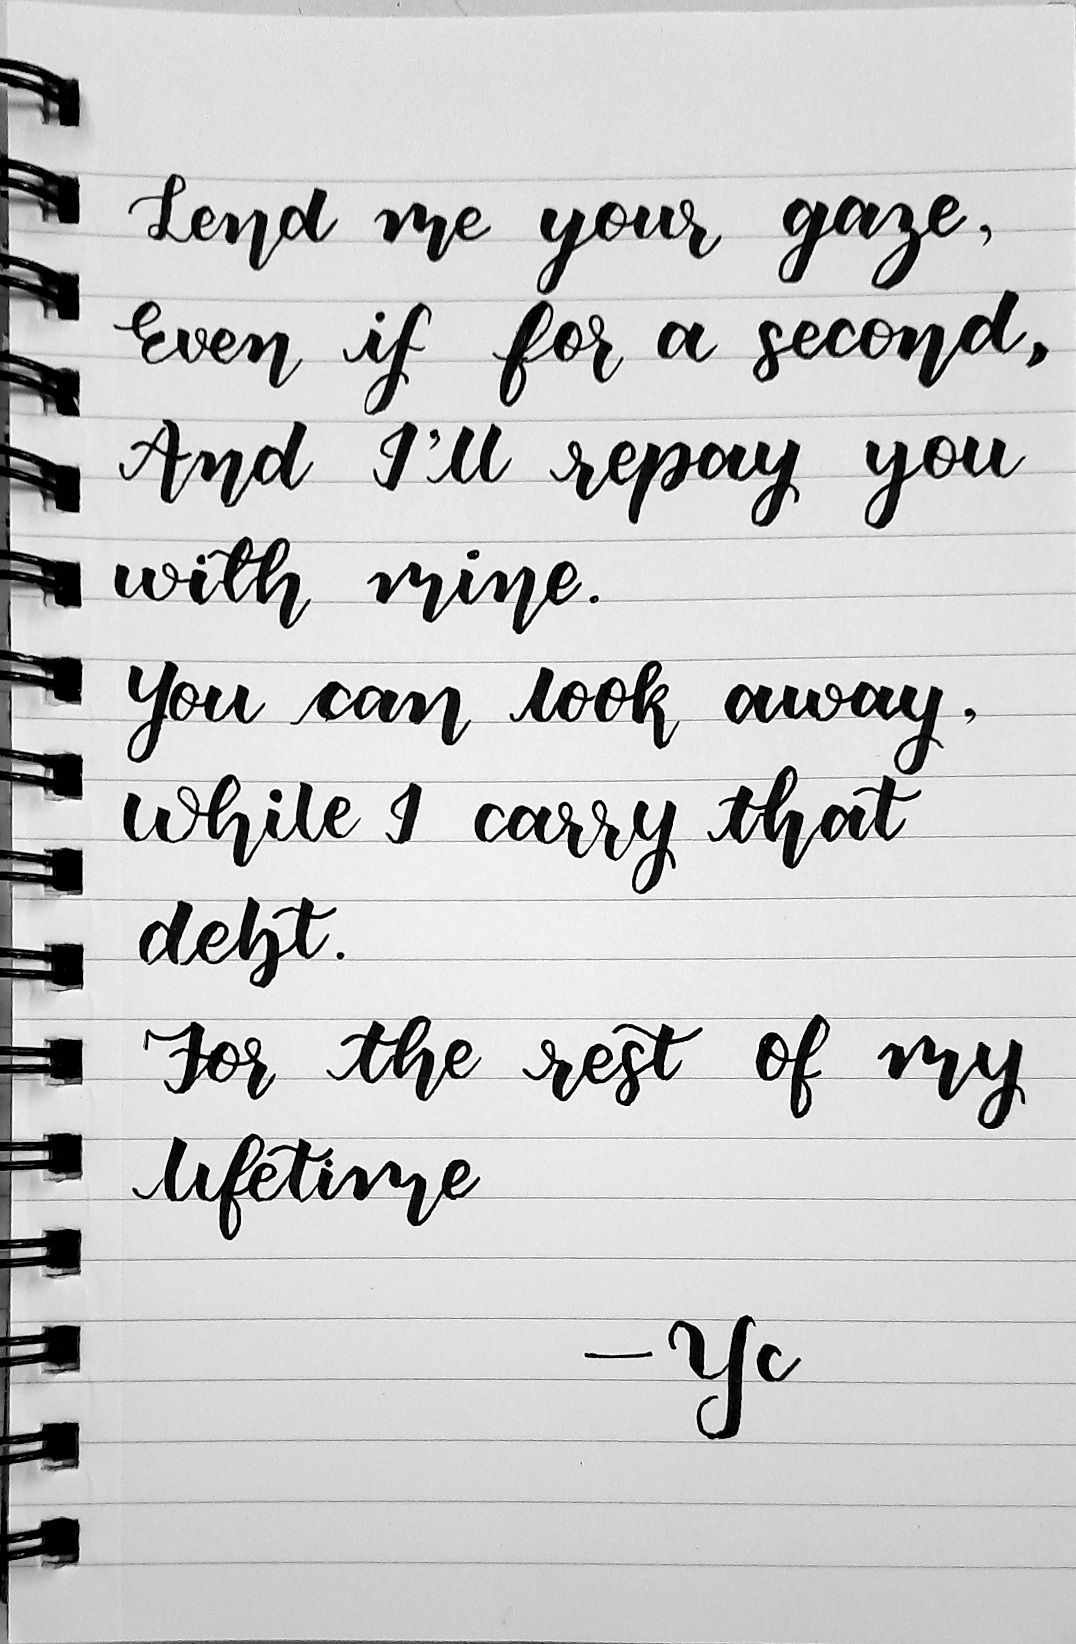 Lend me your gaze,
Even if for a second,
And I'll repay you
with mine.
You can look away,
While I carry that
debt.
For the rest of my
lifetime
– Yc